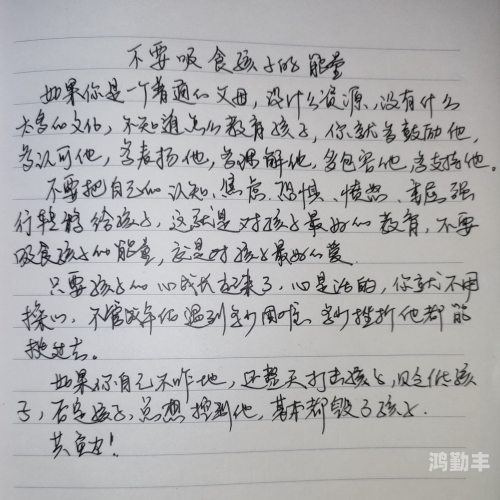 不要吸食孩子的能量
如果你是一个普通的父母，没什么资源，没有什么
太高的文化，不知道怎么教育孩子，你就多鼓励他，
多认可他，多表扬他，多理解他，多包容他，多支持他。
不要把自己的认知、焦虑、恐惧、愤怒、委屈强
行转嫁给孩子，这就是对孩子最好的教育，不要
吸食孩子的能量，就是对孩子最好的爱
只要孩子的心成长起来了，心是活的，你就不用
操心，不管成年后遇到多少困难 多少挫折他都能
挺过去。
如果你自己不咋地，还整天打击孩子，贬低孩
子，否定孩子，总想控制他，基本都毁了孩子.
共勉！
鸿勤丰